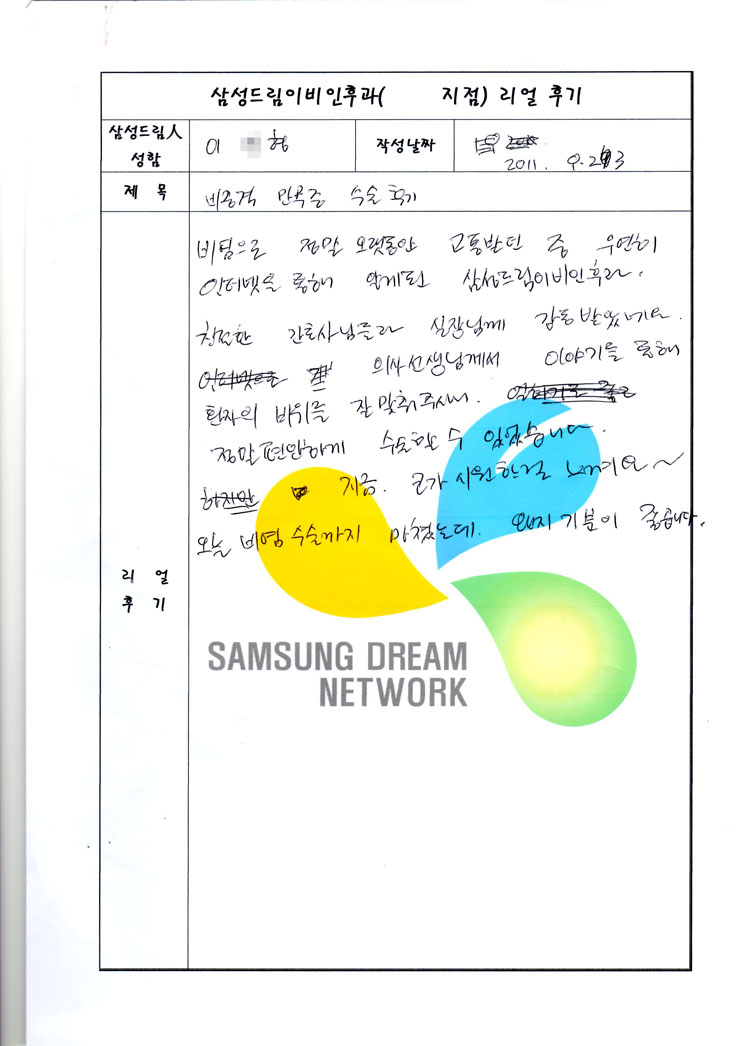 삼성드림이비인후과(          지점) 리얼 후기
삼성드림人 성함
이 형
작성날짜
2011. 9. 23
제 목
비중격 만곡증 수술 후기
리 얼
후 기
비염으로 정말 오랫동안 고통받던 중 우연히
인터넷을 통해 알게된 삼성드림이비인후과.
친절한 간호사님들과 실장님께 감동 받았네요.
의사선생님께서 이야기를 통해
환자의 비위를 잘 맞춰주시니.
정말 편안하게 수술할 수 있었습니다.
지금. 코가 시원한걸 느껴요~
오늘 비염 수술까지 마쳤는데. 왠지 기분이 좋습니다.
SAMSUNG DREAM
NETWORK